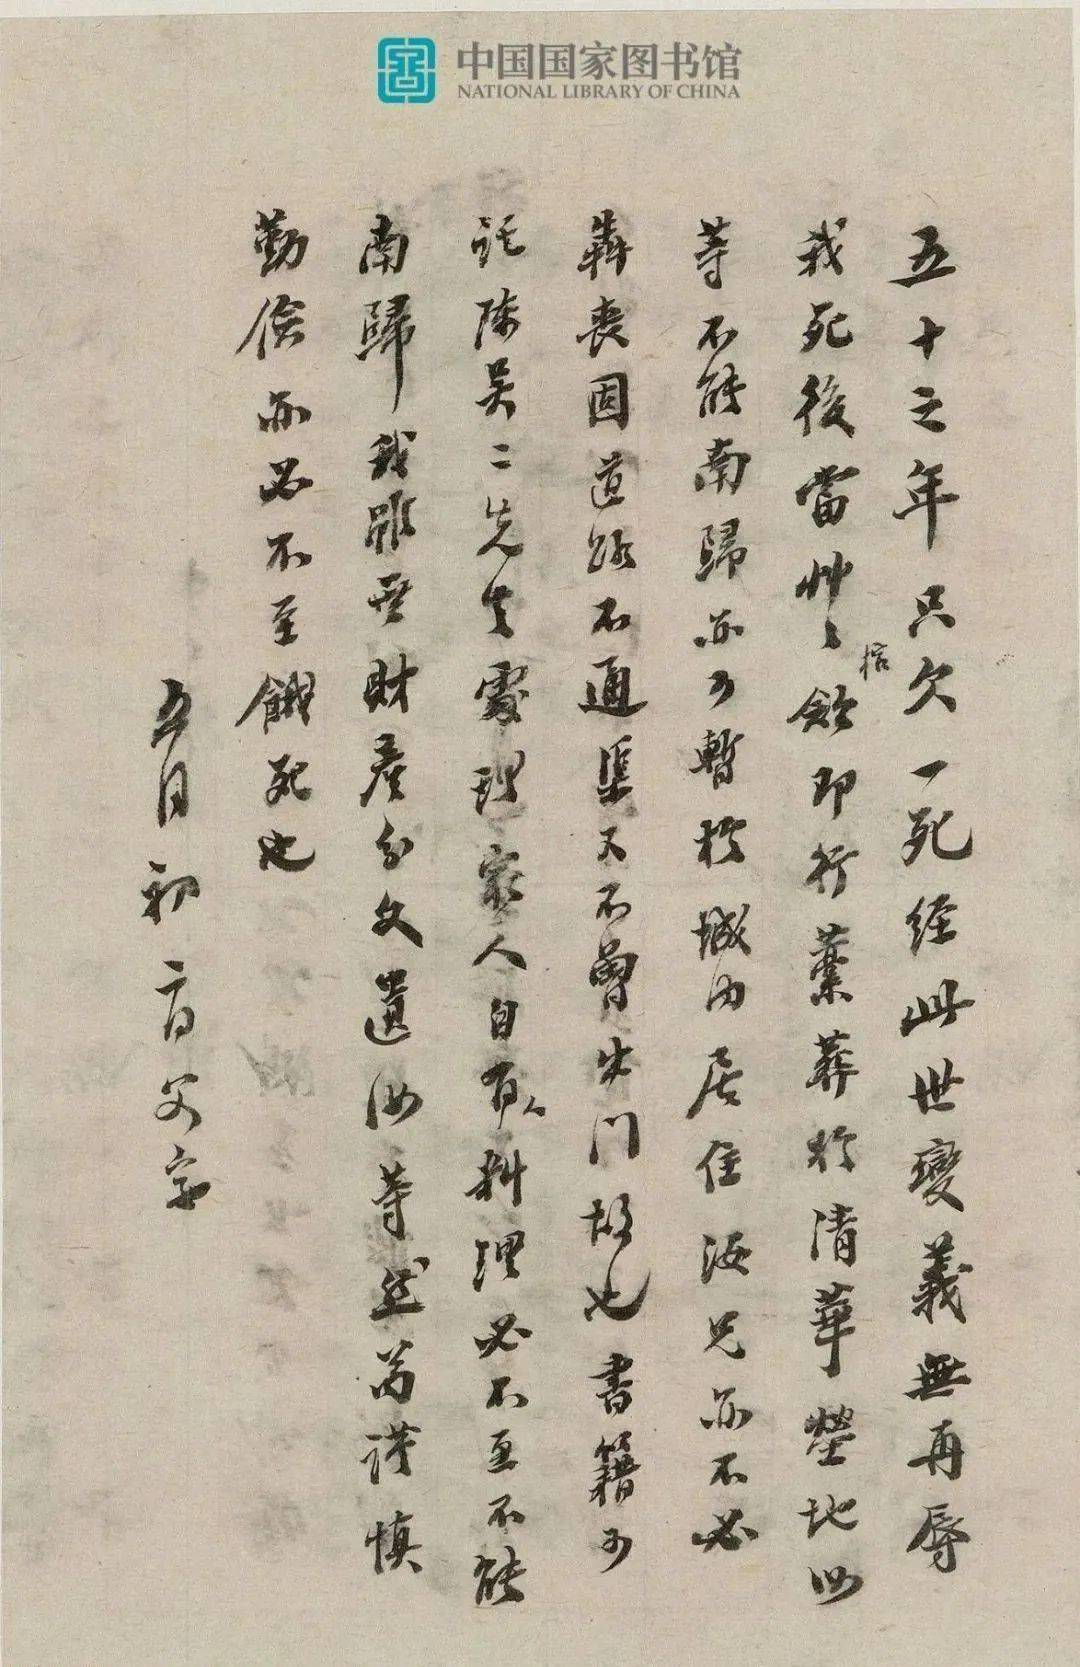 中国国家图书馆
NATIONAL LIBRARY OF CHINA
五十之年只欠一死經此世變義無再辱
我死後當艸〻棺斂即行藁葬於清華塋地汝
等不能南歸亦可暫於城內居住汝兄亦不必
奔喪因道路不通渠又不曾出門故也書籍可
託陳吳二先生處理家人自有人料理必不至不能
南歸我雖無財產分文遺汝等然苟謹慎
勤儉亦必不至餓死也
五月初二日父字